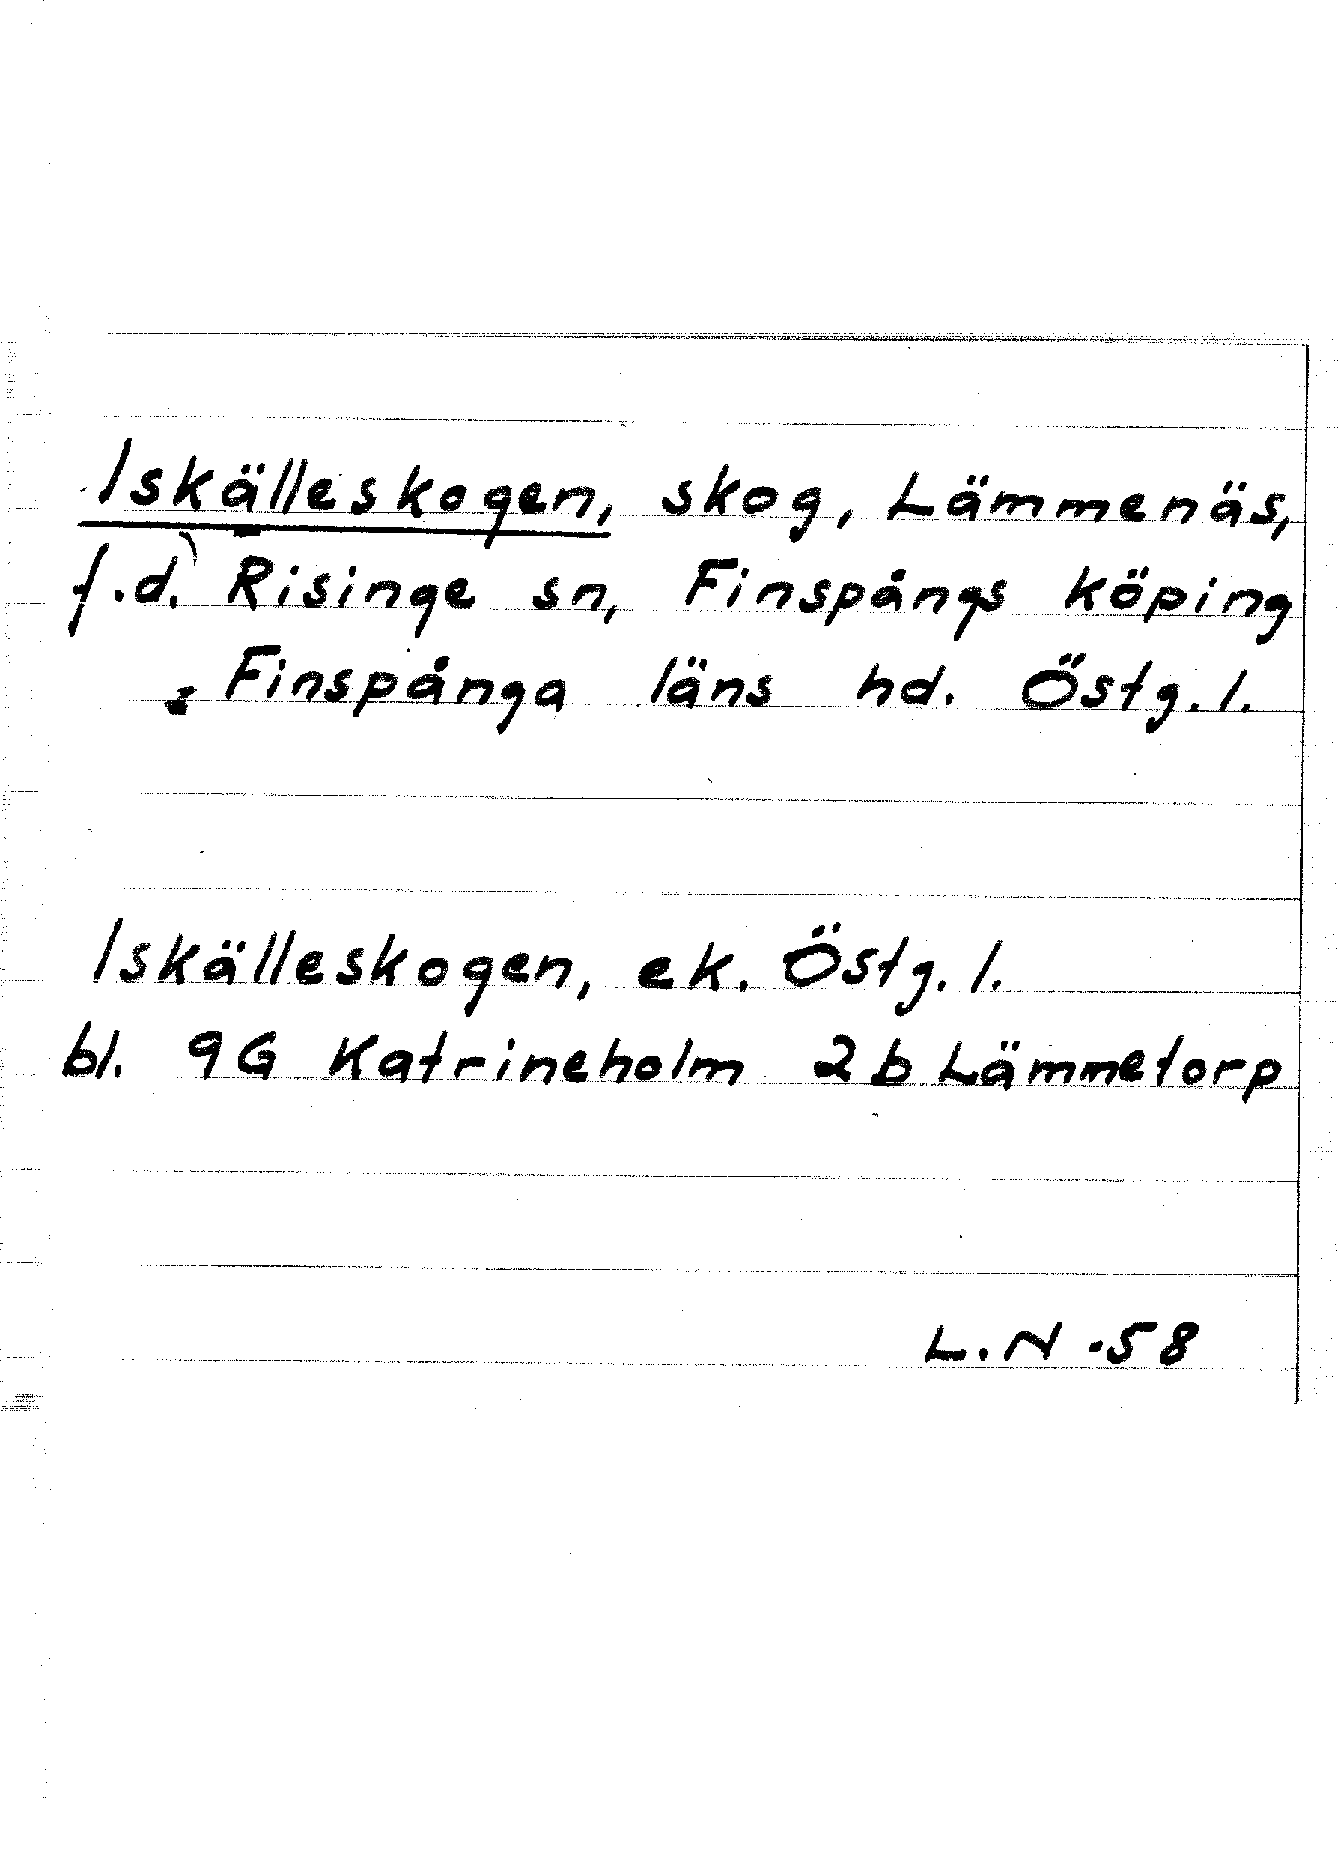 Iskälleskogen, skog, Lämmenäs,
f.d. Risinge sn, Finspångs köping
Finspånga läns hd. Östg. l.
Iskälleskogen, ek. Östg. l.
bl. 9G Katrineholm 2b Lämmetorp
L.N -58